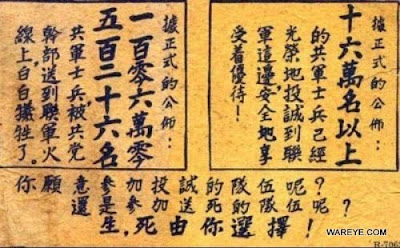 據正式的公佈：
十六萬名以上
的共軍士兵已經
光榮地投誠到聯
軍這邊安全地享
受着優待！
據正式的公佈：
一百零六萬零
五百二十六名
共軍士兵，被共党
幹部送到聯軍火
線上白白犧牲了。
你願意參加投誠的隊伍呢？
還是參加送死的隊伍呢？
生，死由你選擇！
WAREYE.COM